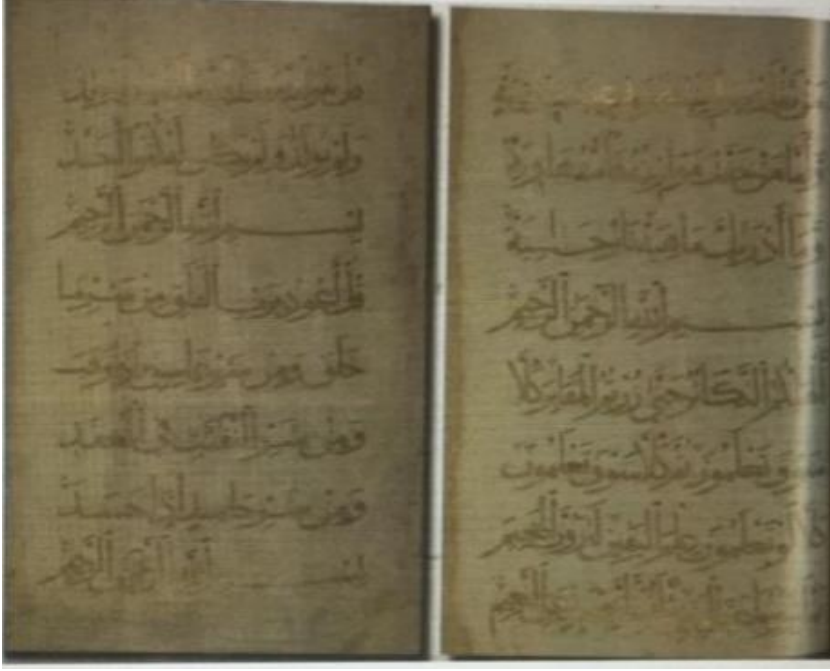 من ثقلت
وأما من خفت موازينه فأمه هاوية
وما أدراك ما هيه نار حامية
بسم الله الرحمن الرحيم
ألهاكم التكاثر حتى زرتم المقابر كلا
سوف تعلمون ثم كلا سوف تعلمون
كلا لو تعلمون علم اليقين لترون الجحيم
النعيم
قل هو الله
ولم يولد ولم يكن له كفوا أحد
بسم الله الرحمن الرحيم
قل أعوذ برب الفلق من شر ما
خلق ومن شر غاسق إذا وقب
ومن شر النفثت في العقد
ومن شر حاسد إذا حسد
بسم الله الرحمن الرحيم